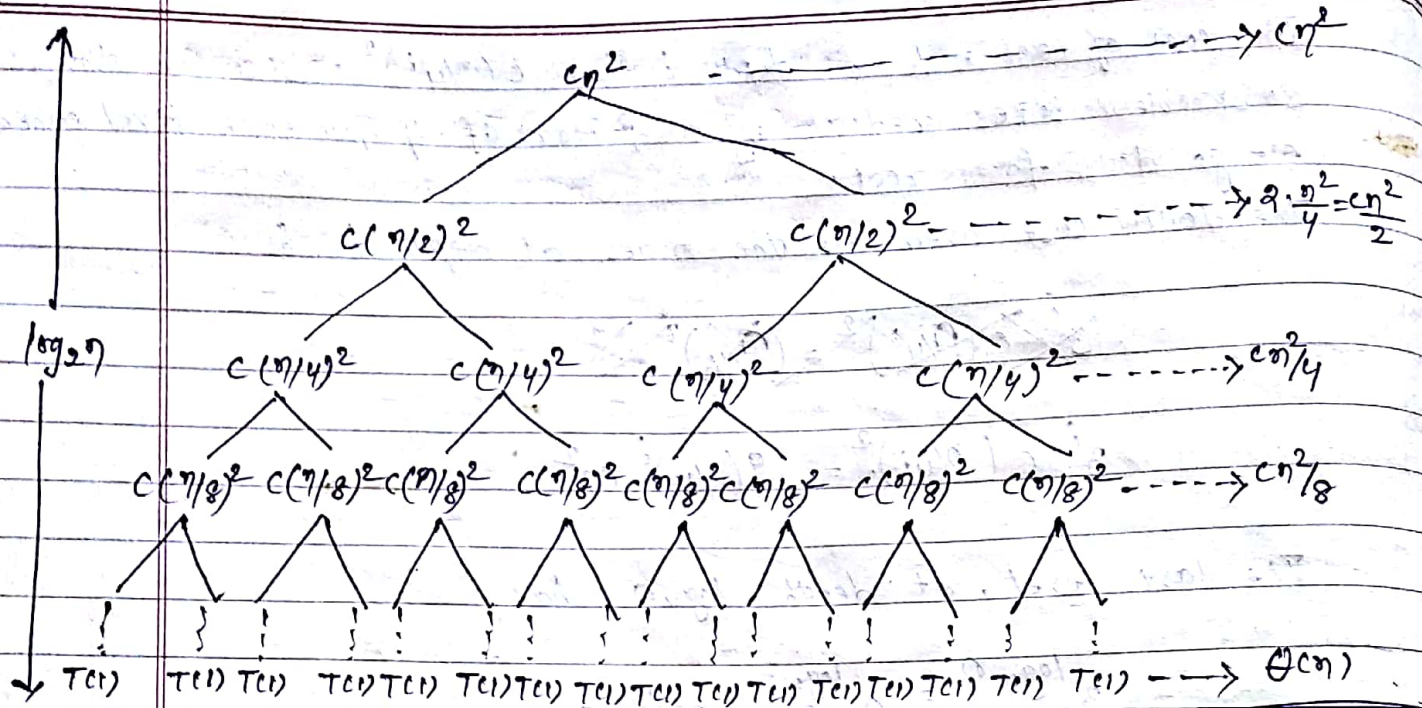 cn² cn²
c(n/2)² c(n/2)² 2·n²/4=cn²/2
log₂n
c(n/4)² c(n/4)² c(n/4)² c(n/4)² cn²/4
c(n/8)² c(n/8)² c(n/8)² c(n/8)² c(n/8)² c(n/8)² c(n/8)² c(n/8)² cn²/8
T(1) T(1) T(1) T(1) T(1) T(1) T(1) T(1) T(1) T(1) T(1) T(1) T(1) T(1) T(1) T(1) θ(n)